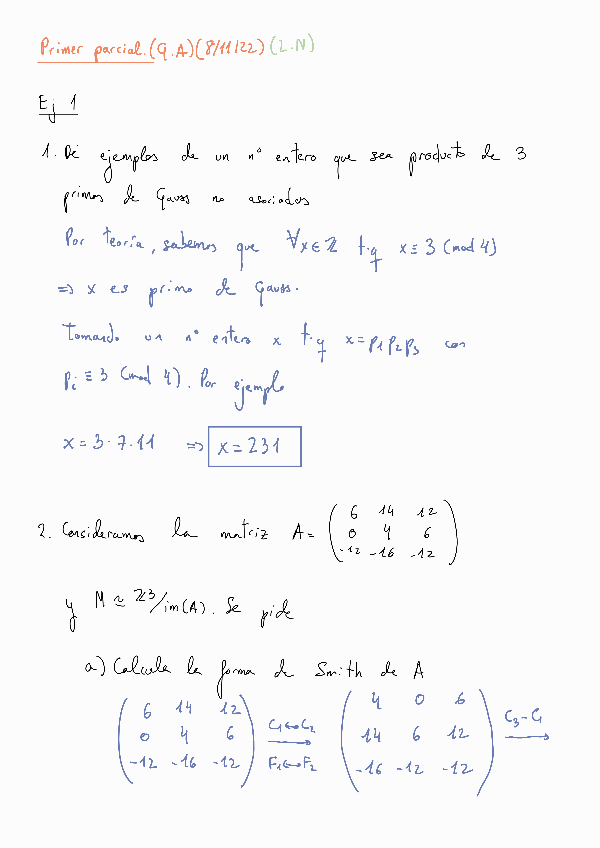 Primer parcial. (G.A) (8/11/22) (L.N)
Ej 1
1. Dé ejemplos de un nº entero que sea producto de 3
primos de Gauss no asociados
Por teoría, sabemos que ∀x∈ℤ t.q x≡3 (mod 4)
⇒ x es primo de Gauss.
Tomando un nº entero x t.q x=p₁p₂p₃ con
pᵢ ≡ 3 (mod 4). Por ejemplo
x = 3·7·11 ⇒ x = 231
2. Consideramos la matriz A= ( 6 14 12
0 4 6
-12 -16 -12 )
y M ≃ ℤ³/im(A). Se pide
a) Calcula la forma de Smith de A
( 6 14 12 C₁↔C₂ ( 4 0 6 C₃-C₁
0 4 6 ⟶ 14 6 12 ⟶
-12 -16 -12 ) F₁↔F₂ -16 -12 -12 )